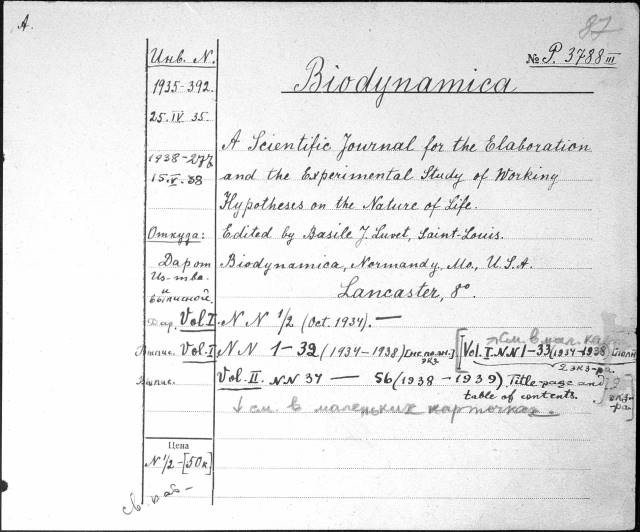 A.
87
Инв. N.
№ P. 3788 III
Biodynamica
1935-392.
25.IV 35.
1938-277
15.V.38
A Scientific Journal for the Elaboration
and the Experimental Study of Working
Hypotheses on the Nature of Life.
Откуда: Edited by Basile J. Luvet, Saint-Louis.
Дар от Biodynamica, Normandy, Mo., U.S.A.
Из-тва. Lancaster, 8º.
и
выписной.
Дар. Vol I N N 1/2 (Oct. 1934). —
Выпис. Vol. I N N 1-32 (1934-1938) [не полн. экз.] [Vol. I. N N 1-33 (1934-1938)
см. в мал. ка
2 экз-ра.
Выпис. Vol. II. N N 34 — 56 (1938-1939) Title-page and
table of contents.
экз-
ра.
↓ см. в маленьких карточках.
Цена
N 1/2-[50к]